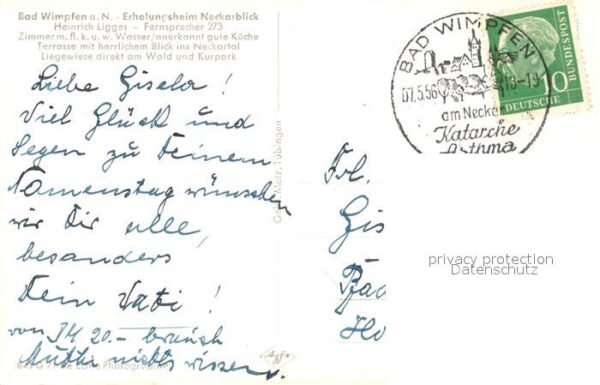 Bad Wimpfen a. N. - Erholungsheim Neckarblick
Heinrich Ligges - Fernsprecher 273
Zimmer m. fl. k. u. w. Wasser/anerkannt gute Küche
Terrasse mit herrlichem Blick ins Neckartal
Liegewiese direkt am Wald und Kurpark
Liebe Gisela!
Viel Glück und
Segen zu Deinem
Namenstag wünschen
wir Dir alle,
besonders
Dein Vati!
von DM 20.- brauch
Mutti nichts wissen.
Gebr. Metz, Tübingen
Echte Photographie
Agfa
BAD WIMPFEN
07.5.56 18-19
am Neckar
Katarrhe
Asthma
DEUTSCHE
BUNDESPOST
10
Frl.
Gis
Bad
Ho
privacy protection
Datenschutz